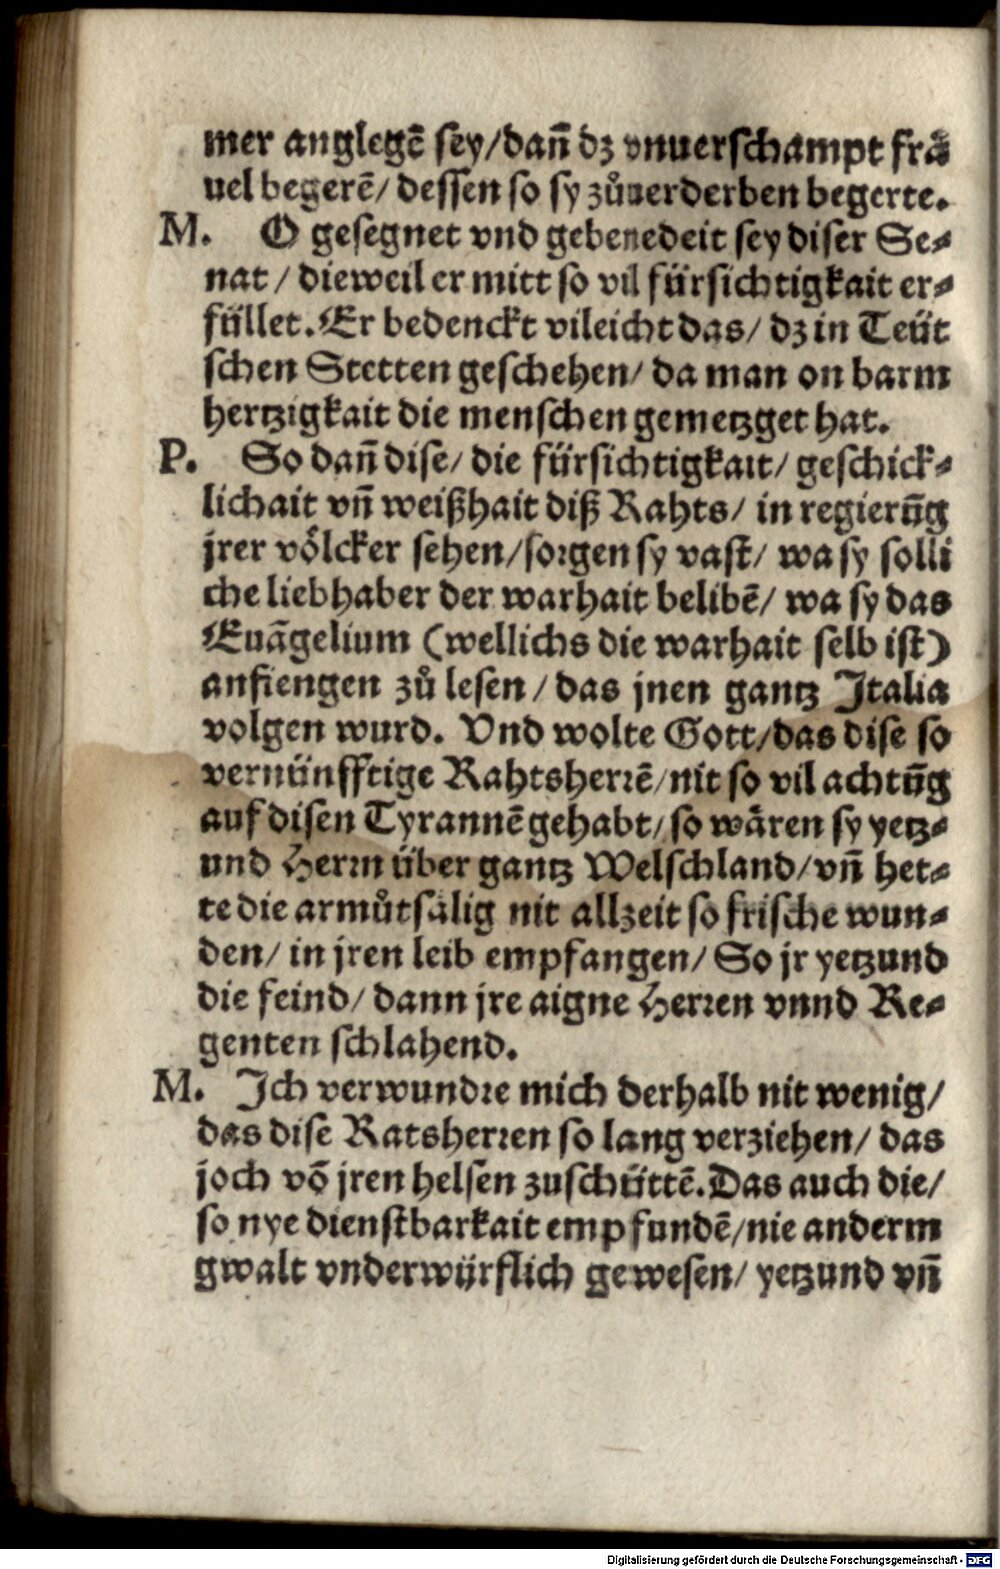 mer anglegẽ sey/dañ dz vnuerschampt frä
uel begerẽ/ dessen so sy zůuerderben begerte.
M. O gesegnet vnd gebenedeit sey diser Se⸗
nat / dieweil er mitt so vil fürsichtigkait er⸗
füllet. Er bedenckt vileicht das/ dz in Teüt
schen Stetten geschehen/ da man on barm
hertzigkait die menschen gemetzget hat.
P. So dañ dise/ die fürsichtigkait/ geschick⸗
lichait vñ weißhait diß Rahts/ in regierũg
jrer völcker sehen/sorgen sy vast/ wa sy solli
che liebhaber der warhait belibẽ/ wa sy das
Euãgelium (wellichs die warhait selb ist)
anfiengen zů lesen / das jnen gantz Italia
volgen wurd. Vnd wolte Gott/das dise so
vernünfftige Rahtsherrẽ/nit so vil achtũg
auf disen Tyrannẽ gehabt/ so wären sy yetz⸗
und Herrn über gantz Welschland/ vñ het⸗
te die armůtsälig nit allzeit so frische wun⸗
den/ in jren leib empfangen/ So jr yetzund
die feind/ dann jre aigne Herren vnnd Re⸗
genten schlahend.
M. Ich verwundre mich derhalb nit wenig/
das dise Ratsherren so lang verziehen/ das
joch võ jren helsen zuschüttẽ. Das auch die/
so nye dienstbarkait empfundẽ/nie anderm
gwalt vnderwürflich gewesen/ yetzund vñ
Digitalisierung gefördert durch die Deutsche Forschungsgemeinschaft - DFG